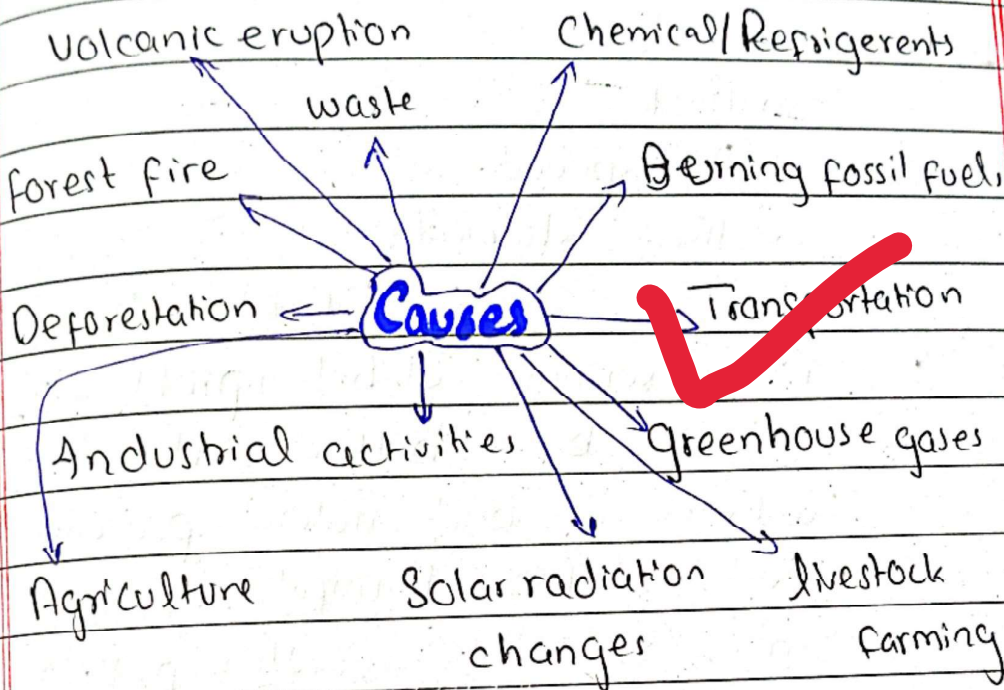 Volcanic eruption
Chemical/Refrigerents
waste
forest fire
Burning fossil fuel,
Causes
Deforestation
Transportation
Andustrial activities
greenhouse gases
Agriculture
Solar radiation
changes
livestock
farming